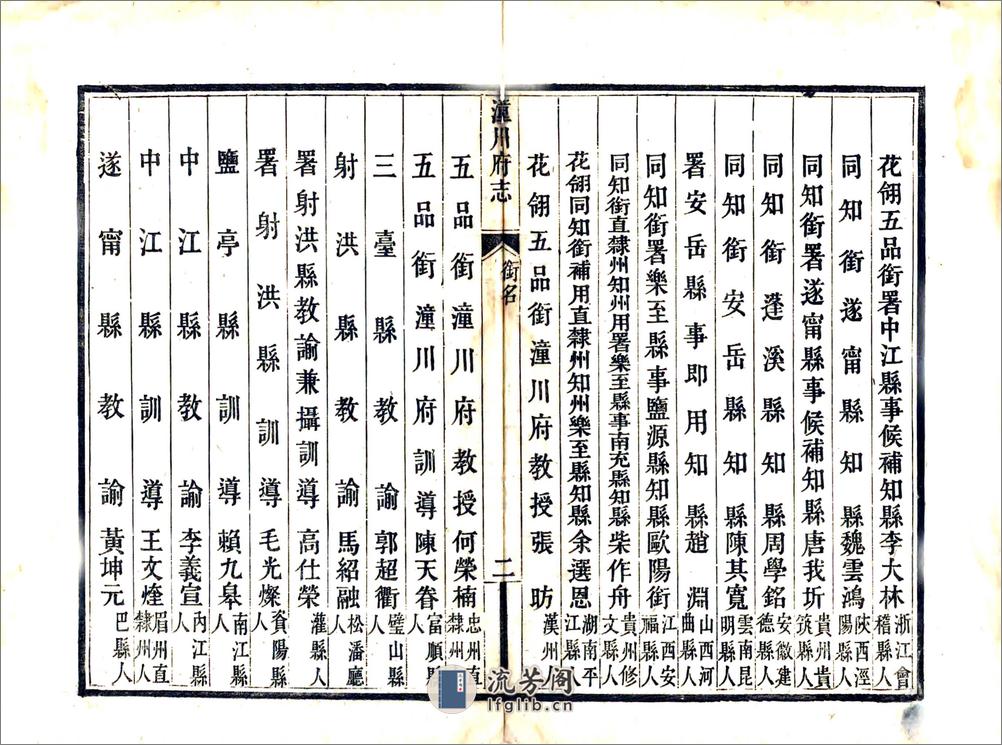 花翎五品銜署中江縣事候補知縣李大林浙江會稽縣人
同知銜遂甯縣知縣魏雲鴻陝西涇陽縣人
同知銜署遂甯縣事候補知縣唐我圻貴州貴筑縣人
同知銜蓬溪縣知縣周學銘安徽建德縣人
同知銜安岳縣知縣陳其寬雲南昆明縣人
署安岳縣事即用知縣趙淵山西河曲縣人
同知銜署樂至縣事鹽源縣知縣歐陽銜江西安福縣人
同知銜直隸州知州用署樂至縣事南充縣知縣柴作舟貴州修文縣人
花翎同知銜補用直隸州知州樂至縣知縣余選恩湖南平江縣人
花翎五品銜潼川府教授張昉漢州人
潼川府志
銜名
二
五品銜潼川府教授何榮楠忠州直隸州人
五品銜潼川府訓導陳天眷富順縣人
三臺縣教諭郭超衢璧山縣人
射洪縣教諭馬紹融松潘廳人
署射洪縣教諭兼攝訓導高仕榮灌縣人
署射洪縣訓導毛光燦資陽縣人
鹽亭縣訓導賴九皋南江縣人
中江縣教諭李義宣內江縣人
中江縣訓導王文煃眉州直隸州人
遂甯縣教諭黃坤元巴縣人
流芳阁
lfglib.cn